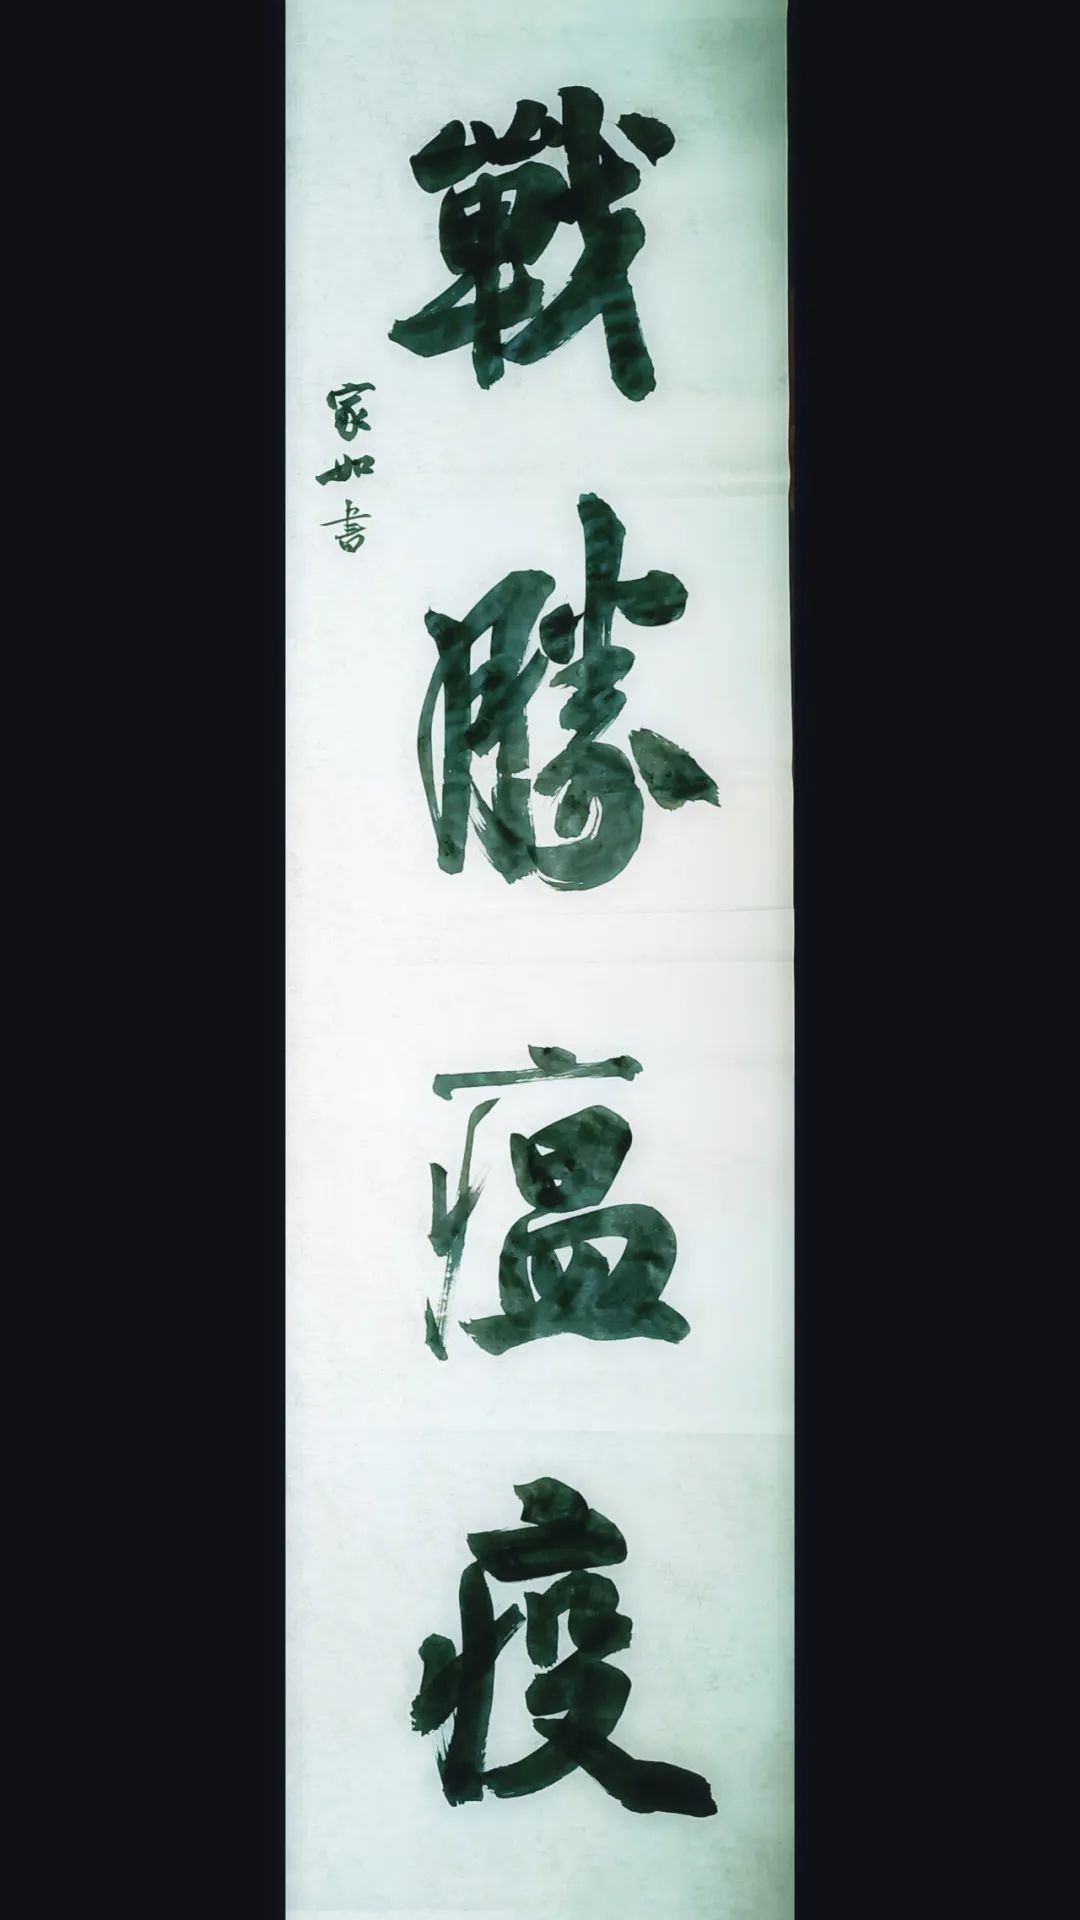 戰勝瘟疫
家如書